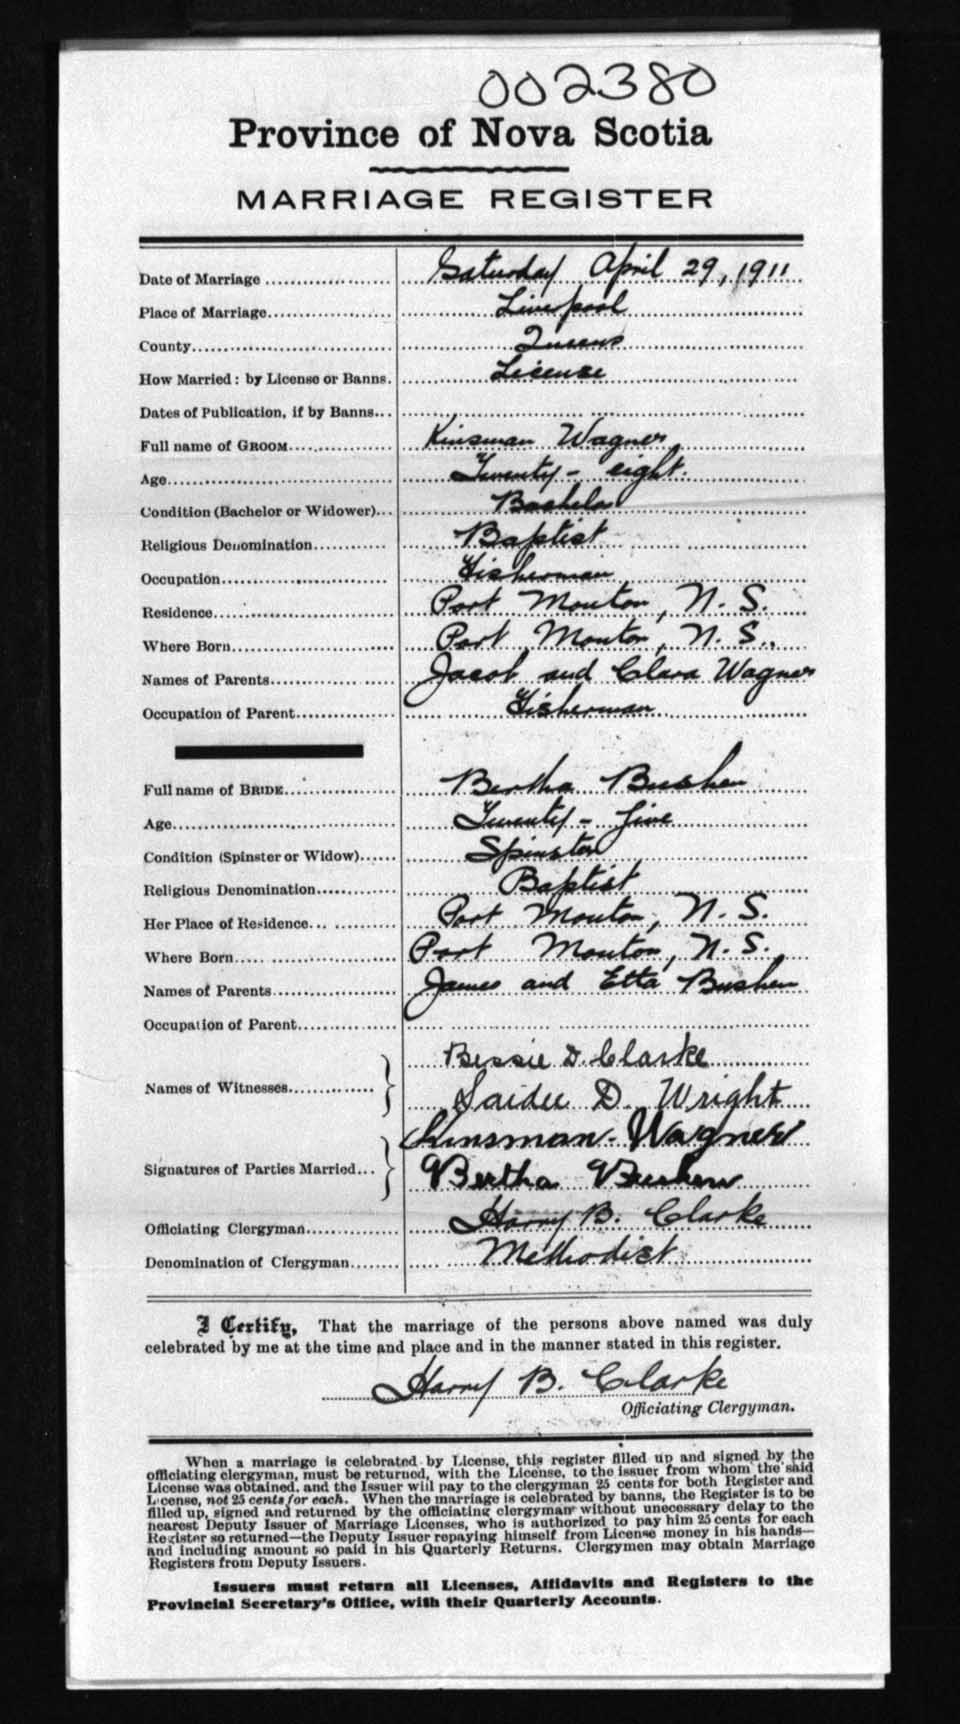 002380
Province of Nova Scotia
MARRIAGE REGISTER
Date of Marriage Saturday April 29, 1911
Place of Marriage Liverpool
County Queens
How Married: by License or Banns. License
Dates of Publication, if by Banns
Full name of GROOM Kinsman Wagner
Age Twenty-eight.
Condition (Bachelor or Widower) Bachelor
Religious Denomination Baptist
Occupation Fisherman
Residence Port Mouton, N. S.
Where Born Port Mouton, N. S.
Names of Parents Jacob and Clara Wagner
Occupation of Parent Fisherman
Full name of BRIDE Bertha Bushen
Age Twenty-five
Condition (Spinster or Widow) Spinster
Religious Denomination Baptist
Her Place of Residence Port Mouton, N. S.
Where Born Port Mouton, N. S.
Names of Parents James and Etta Bushen
Occupation of Parent
Bessie D. Clarke
Names of Witnesses
Saidee D. Wright
Kinsman Wagner
Signatures of Parties Married
Bertha Bushen
Officiating Clergyman Harry B. Clarke
Denomination of Clergyman Methodist
I Certify, That the marriage of the persons above named was duly
celebrated by me at the time and place and in the manner stated in this register.
Harry B. Clarke
Officiating Clergyman.
When a marriage is celebrated by License, this register filled up and signed by the
officiating clergyman, must be returned, with the License, to the issuer from whom the said
License was obtained, and the Issuer will pay to the clergyman 25 cents for both Register and
License, not 25 cents for each. When the marriage is celebrated by banns, the Register is to be
filled up, signed and returned by the officiating clergyman without unnecessary delay to the
nearest Deputy Issuer of Marriage Licenses, who is authorized to pay him 25 cents for each
Register so returned—the Deputy Issuer repaying himself from License money in his hands—
and including amount so paid in his Quarterly Returns. Clergymen may obtain Marriage
Registers from Deputy Issuers.
Issuers must return all Licenses, Affidavits and Registers to the
Provincial Secretary's Office, with their Quarterly Accounts.